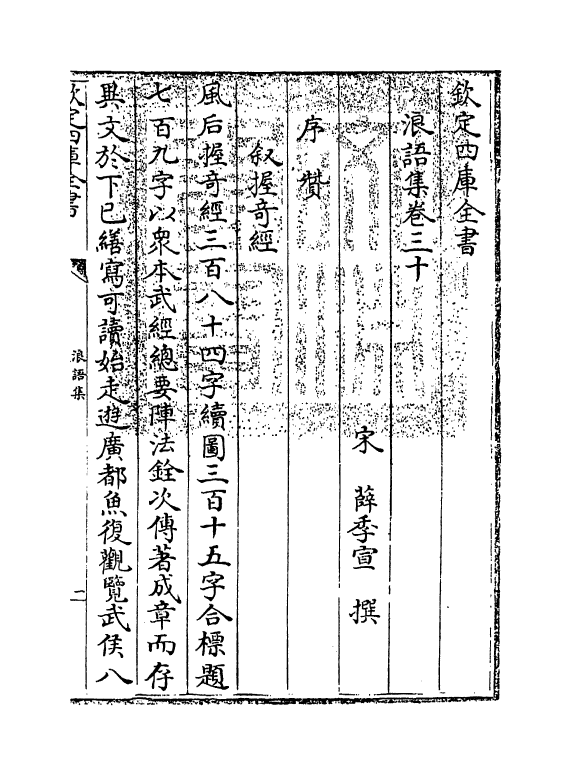 欽定四庫全書
浪語集卷三十
宋 薛季宣 撰
序贊
叙握奇經
風后握奇經三百八十四字續圖三百十五字合標題
七百九字以衆本武經總要陣法銓次傳著成章而存
異文於下已繕寫可讀始走遊廣都魚復觀覽武侯八
欽定四庫全書
浪語集
二